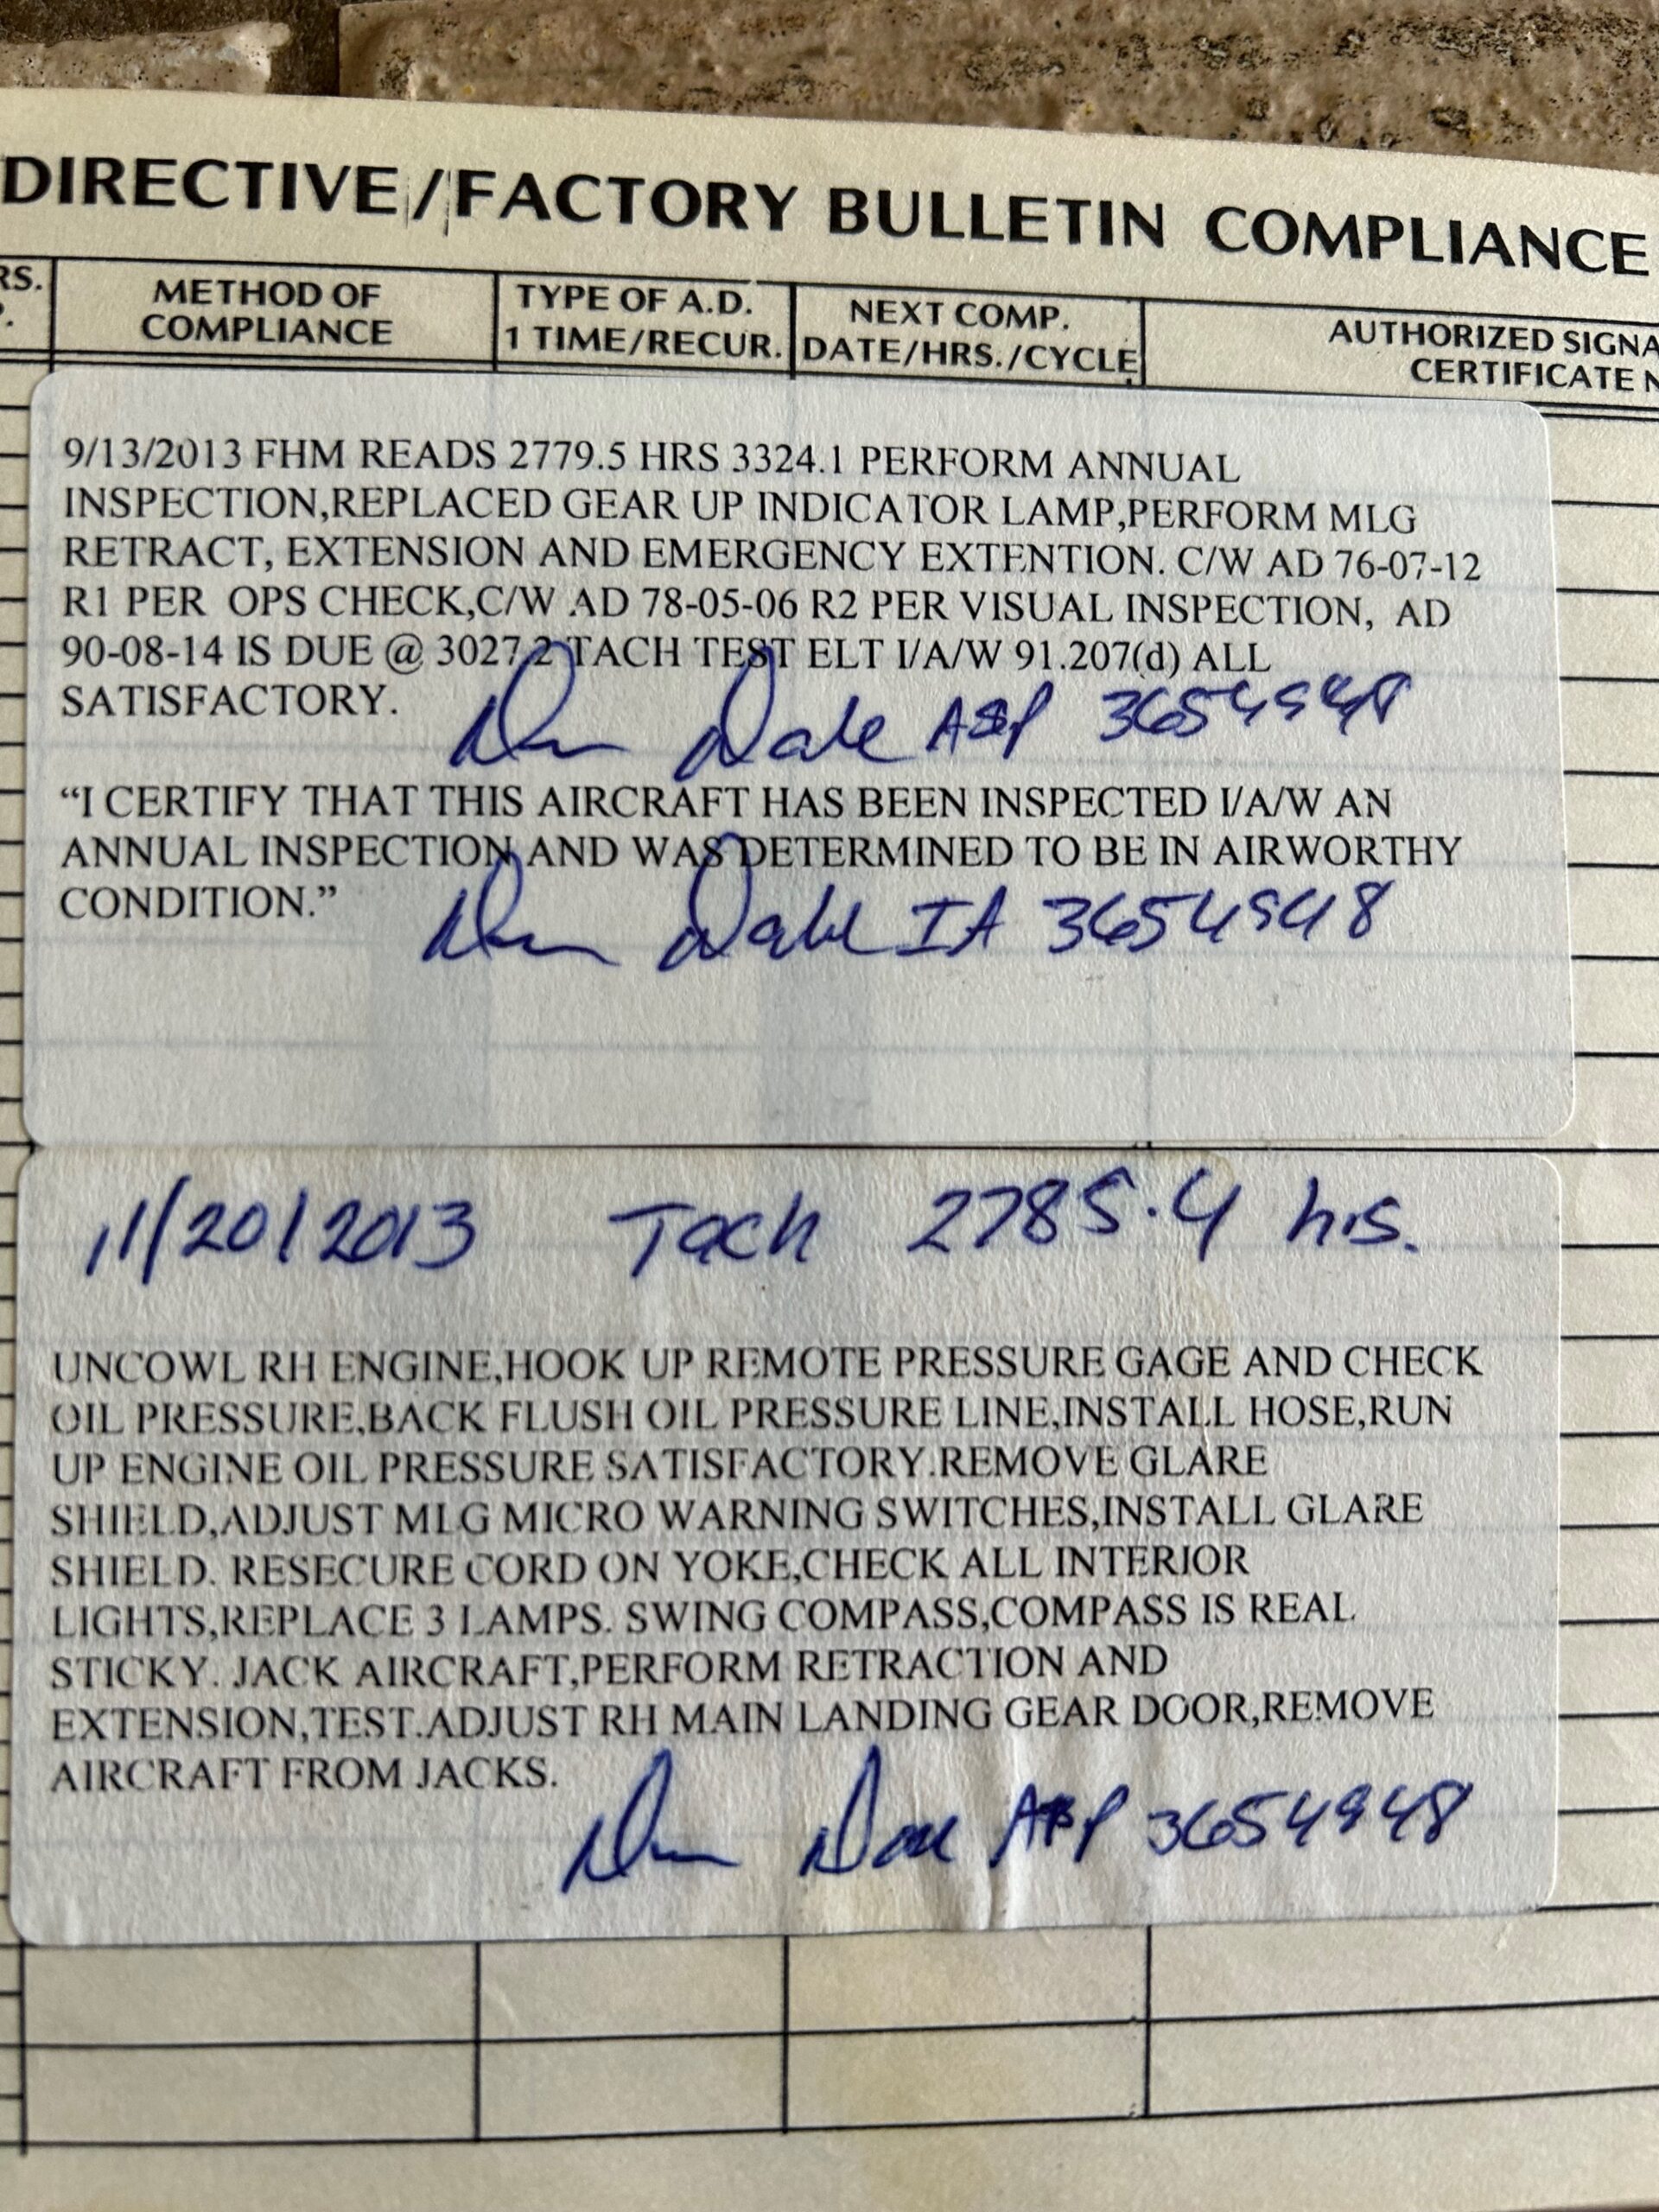 DIRECTIVE/FACTORY BULLETIN COMPLIANCE
RS.
METHOD OF
COMPLIANCE
TYPE OF A.D.
1 TIME/RECUR.
NEXT COMP.
DATE/HRS./CYCLE
AUTHORIZED SIGNA
CERTIFICATE N
9/13/2013 FHM READS 2779.5 HRS 3324.1 PERFORM ANNUAL
INSPECTION,REPLACED GEAR UP INDICATOR LAMP,PERFORM MLG
RETRACT, EXTENSION AND EMERGENCY EXTENTION. C/W AD 76-07-12
R1 PER OPS CHECK,C/W AD 78-05-06 R2 PER VISUAL INSPECTION, AD
90-08-14 IS DUE @ 3027.2 TACH TEST ELT I/A/W 91.207(d) ALL
SATISFACTORY.
A&P 3654948
“I CERTIFY THAT THIS AIRCRAFT HAS BEEN INSPECTED I/A/W AN
ANNUAL INSPECTION AND WAS DETERMINED TO BE IN AIRWORTHY
CONDITION.”
IA 3654948
11/20/2013 Tach 2785.4 hrs.
UNCOWL RH ENGINE,HOOK UP REMOTE PRESSURE GAGE AND CHECK
OIL PRESSURE,BACK FLUSH OIL PRESSURE LINE,INSTALL HOSE,RUN
UP ENGINE OIL PRESSURE SATISFACTORY.REMOVE GLARE
SHIELD,ADJUST MLG MICRO WARNING SWITCHES,INSTALL GLARE
SHIELD. RESECURE CORD ON YOKE,CHECK ALL INTERIOR
LIGHTS,REPLACE 3 LAMPS. SWING COMPASS,COMPASS IS REAL
STICKY. JACK AIRCRAFT,PERFORM RETRACTION AND
EXTENSION,TEST.ADJUST RH MAIN LANDING GEAR DOOR,REMOVE
AIRCRAFT FROM JACKS.
A&P 3654948